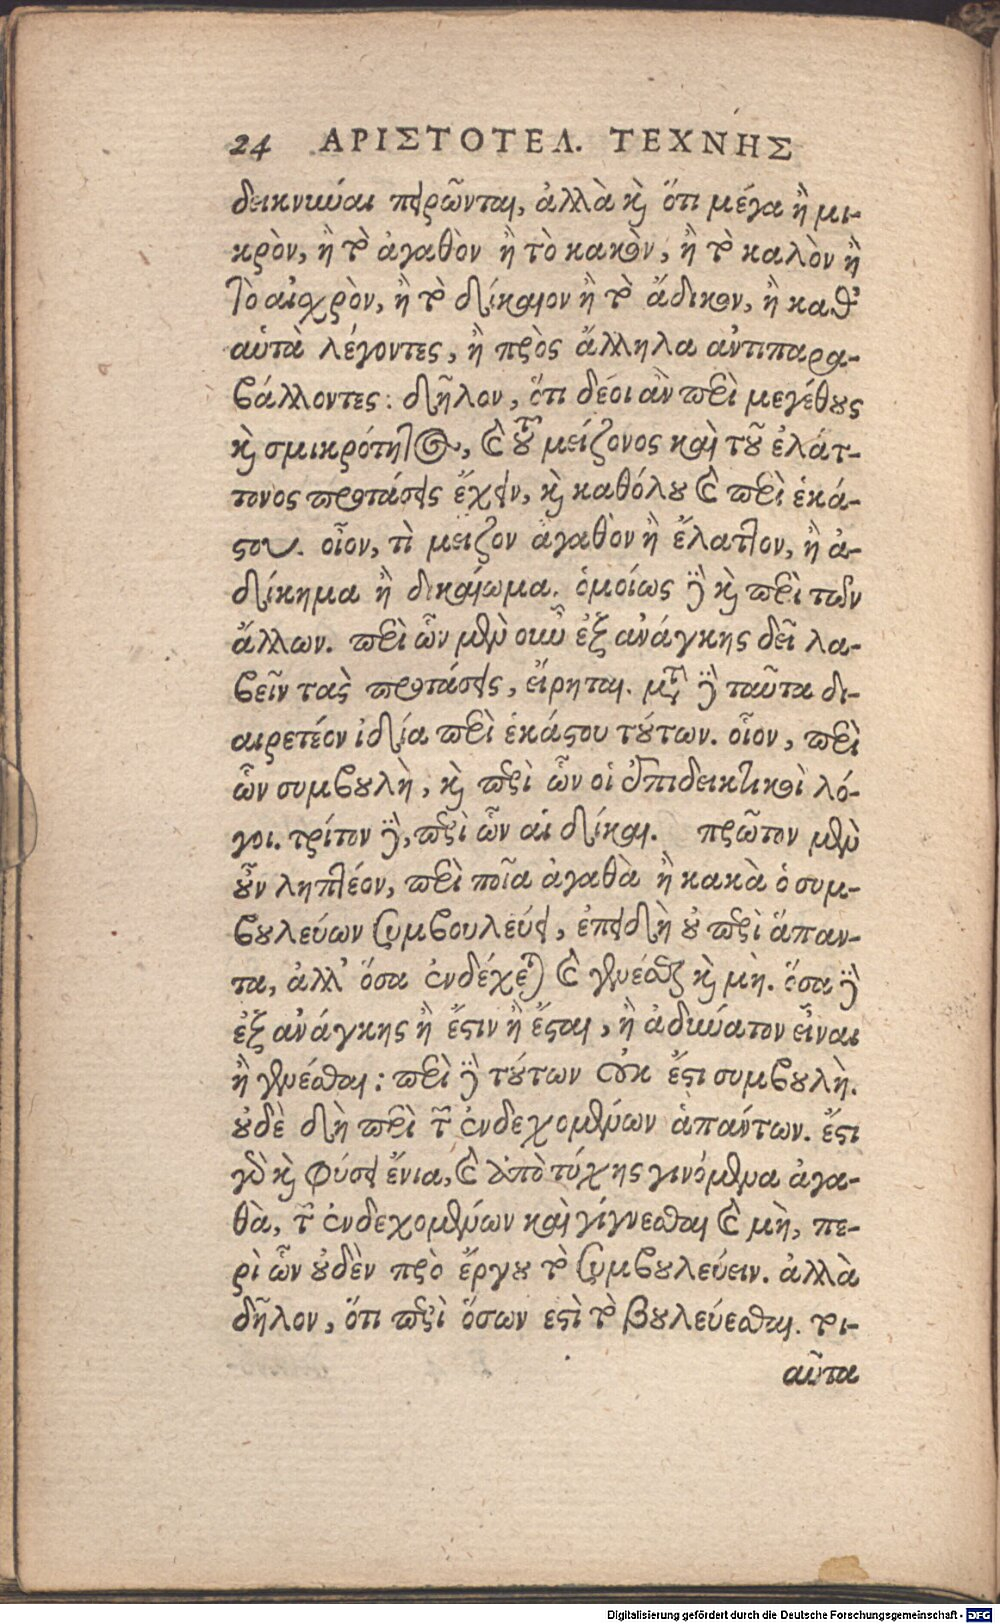 24 ΑΡΙΣΤΟΤΕΛ. ΤΕΧΝΗΣ
δεικνύναι πειρῶνται, ἀλλὰ καὶ ὅτι μέγα ἢ μι-
κρὸν, ἢ τὸ ἀγαθὸν ἢ τὸ κακὸν, ἢ τὸ καλὸν ἢ
τὸ αἰσχρὸν, ἢ τὸ δίκαιον ἢ τὸ ἄδικον, ἢ καθ᾽
αὑτὰ λέγοντες, ἢ πρὸς ἄλληλα ἀντιπαρα-
βάλλοντες: δῆλον, ὅτι δέοι ἂν περὶ μεγέθους
καὶ σμικρότητος, καὶ τοῦ μείζονος καὶ τοῦ ἐλάτ-
τονος προτάσεις ἔχειν, καὶ καθόλου καὶ περὶ ἑκά-
στου. οἷον, τὶ μεῖζον ἀγαθὸν ἢ ἔλαττον, ἢ ἀ-
δίκημα ἢ δικαίωμα. ὁμοίως δὲ καὶ περὶ τῶν
ἄλλων. περὶ ὧν μὲν οὖν ἐξ ἀνάγκης δεῖ λα-
βεῖν τὰς προτάσεις, εἴρηται. μετὰ δὲ ταῦτα δι-
αιρετέον ἰδία περὶ ἑκάστου τούτων. οἷον, περὶ
ὧν συμβουλὴ, καὶ περὶ ὧν οἱ ἐπιδεικτικοὶ λό-
γοι. τρίτον δὲ, περὶ ὧν αἱ δίκαι. πρῶτον μὲν
οὖν ληπτέον, περὶ ποῖα ἀγαθὰ ἢ κακὰ ὁ συμ-
βουλεύων συμβουλεύει, ἐπειδὴ οὐ περὶ ἅπαν-
τα, ἀλλ᾽ ὅσα ἐνδέχεται καὶ γενέσθαι καὶ μὴ. ὅσα δὲ
ἐξ ἀνάγκης ἢ ἔστιν ἢ ἔσται, ἢ ἀδύνατον εἶναι
ἢ γενέσθαι: περὶ δὲ τούτων οὐκ ἔστι συμβουλὴ.
οὐδὲ δὴ περὶ τῶν ἐνδεχομένων ἁπάντων. ἔστι
γὰρ καὶ φύσει ἔνια, καὶ ἀπὸ τύχης γινόμενα ἀγα-
θὰ, τῶν ἐνδεχομένων καὶ γίγνεσθαι καὶ μὴ, πε-
ρὶ ὧν οὐδὲν πρὸ ἔργου τὸ συμβουλεύειν. ἀλλὰ
δῆλον, ὅτι περὶ ὅσων ἐστὶ τὸ βουλεύεσθαι. τοι-
αῦτα
Digitalisierung gefördert durch die Deutsche Forschungsgemeinschaft - DFG